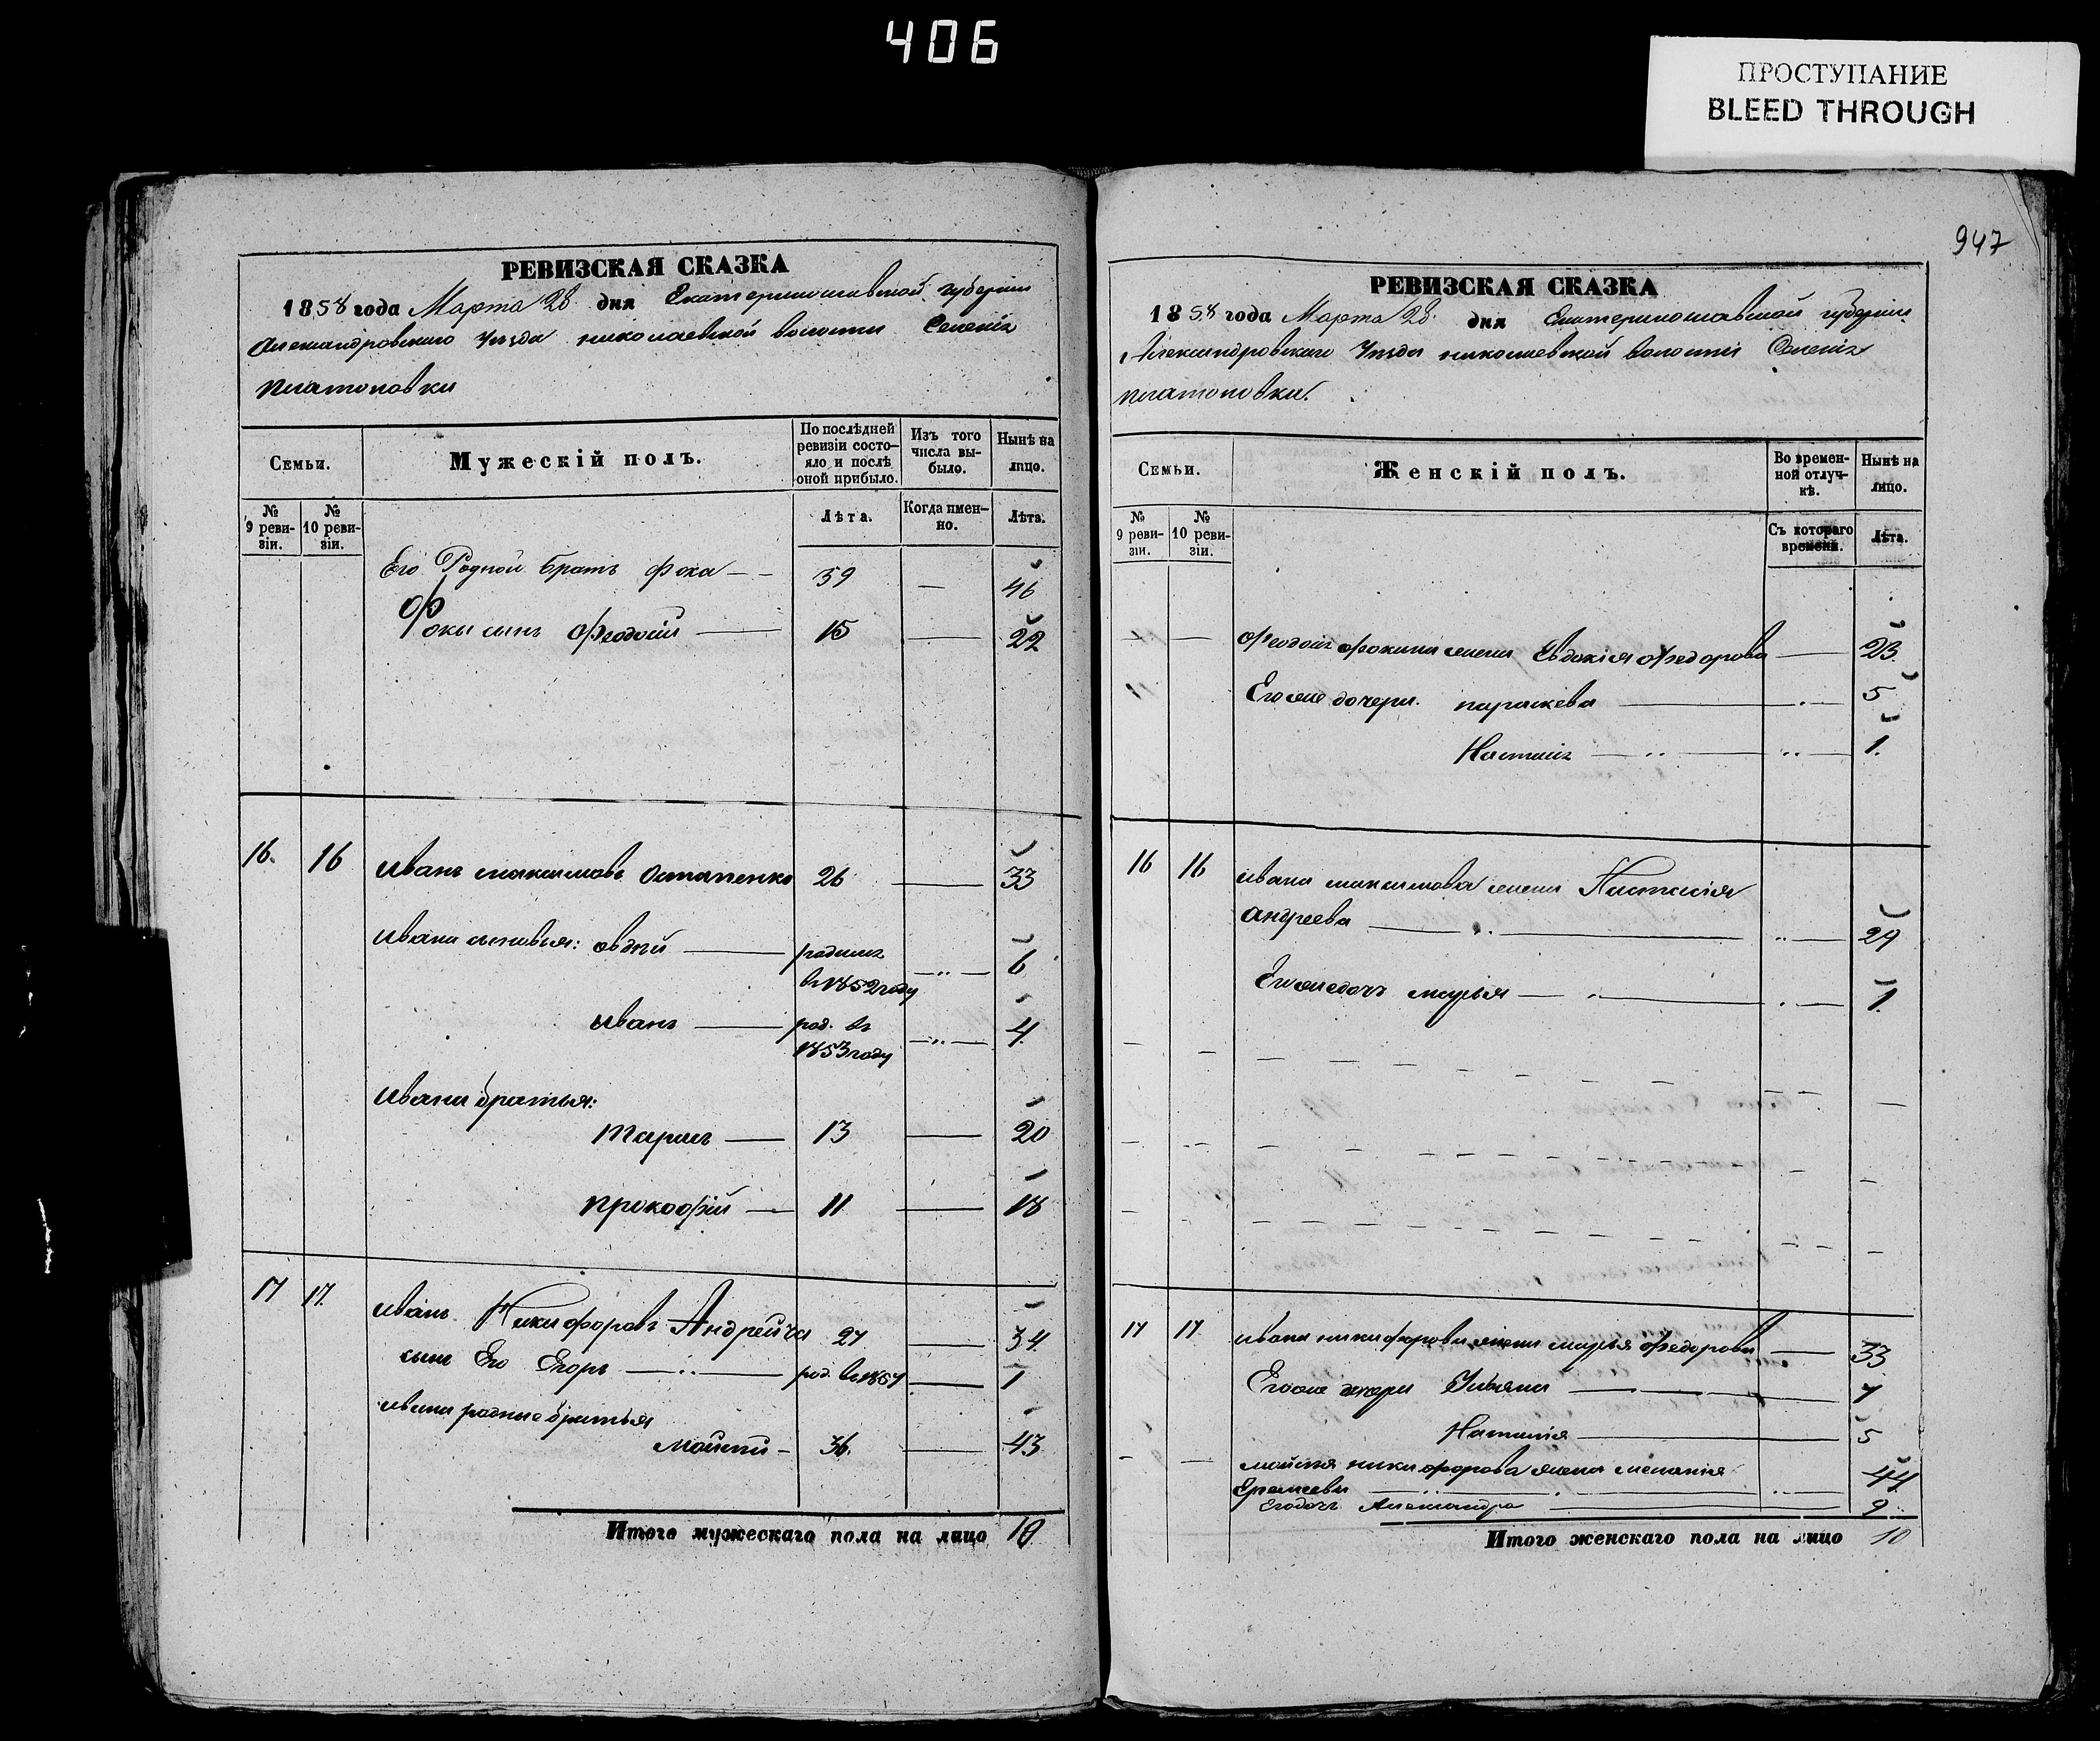 406
ПРОСТУПАНИЕ
BLEED THROUGH
РЕВИЗСКАЯ СКАЗКА
1858 года Марта 28 дня Екатеринославской губернии
Александровского Уезда николаевской волости Селения
платоновки
Семьи.
Мужескій полъ.
По послѣдней ревизіи состо-
яло и послѣ оной прибыло.
Изъ того числа вы-
было.
Нынѣ на лицо.
№ 9 реви-
зіи.
№ 10 реви-
зіи.
Лѣта.
Когда имен-
но.
Лѣта.
Его Родной братъ Фока — 39 — 46
Фоки сынъ Феодосій — 15 — 22
16. 16 Иванъ максимовъ Остапенко 26 — 33
Ивана сыновья: овдій — родился
въ 1852 году — 6
Иванъ — род. въ
1853 году — 4
Ивана братья:
Тарасъ — 13 — 20
прокофій — 11 — 18
17 17. Иванъ Никифоровъ Андрейча 27 — 34
сынъ Его Егоръ — род. въ 1857 — 1
Ивана родные братья
Моисей — 36. — 43
Итого мужескаго пола на лицо 10
947
РЕВИЗСКАЯ СКАЗКА
1858 года Марта 28 дня Екатеринославской губернии
Александровского Уезда николаевской волости Селения
платоновки.
Семьи.
Женскій полъ.
Во времен-
ной отлуч-
кѣ.
Нынѣ на лицо.
№ 9 реви-
зіи.
№ 10 реви-
зіи.
Съ котораго времени.
Лѣта.
Феодосія фокина жена Евдокія Федорова — 23
Его же дочери. параскева — 5
Настасія — 1.
16 16 Ивана максимова жена Настасія
Андреева — 29
Его же дочь марья — 1
17 17 Ивана никифорова жена марья Федорова — 33
Его же дочери Ульяна — 7
Настасія — 5
мойсея никифорова жена меланія
Еремеева — 44
Его дочь Александра — 9
Итого женскаго пола на лицо 10